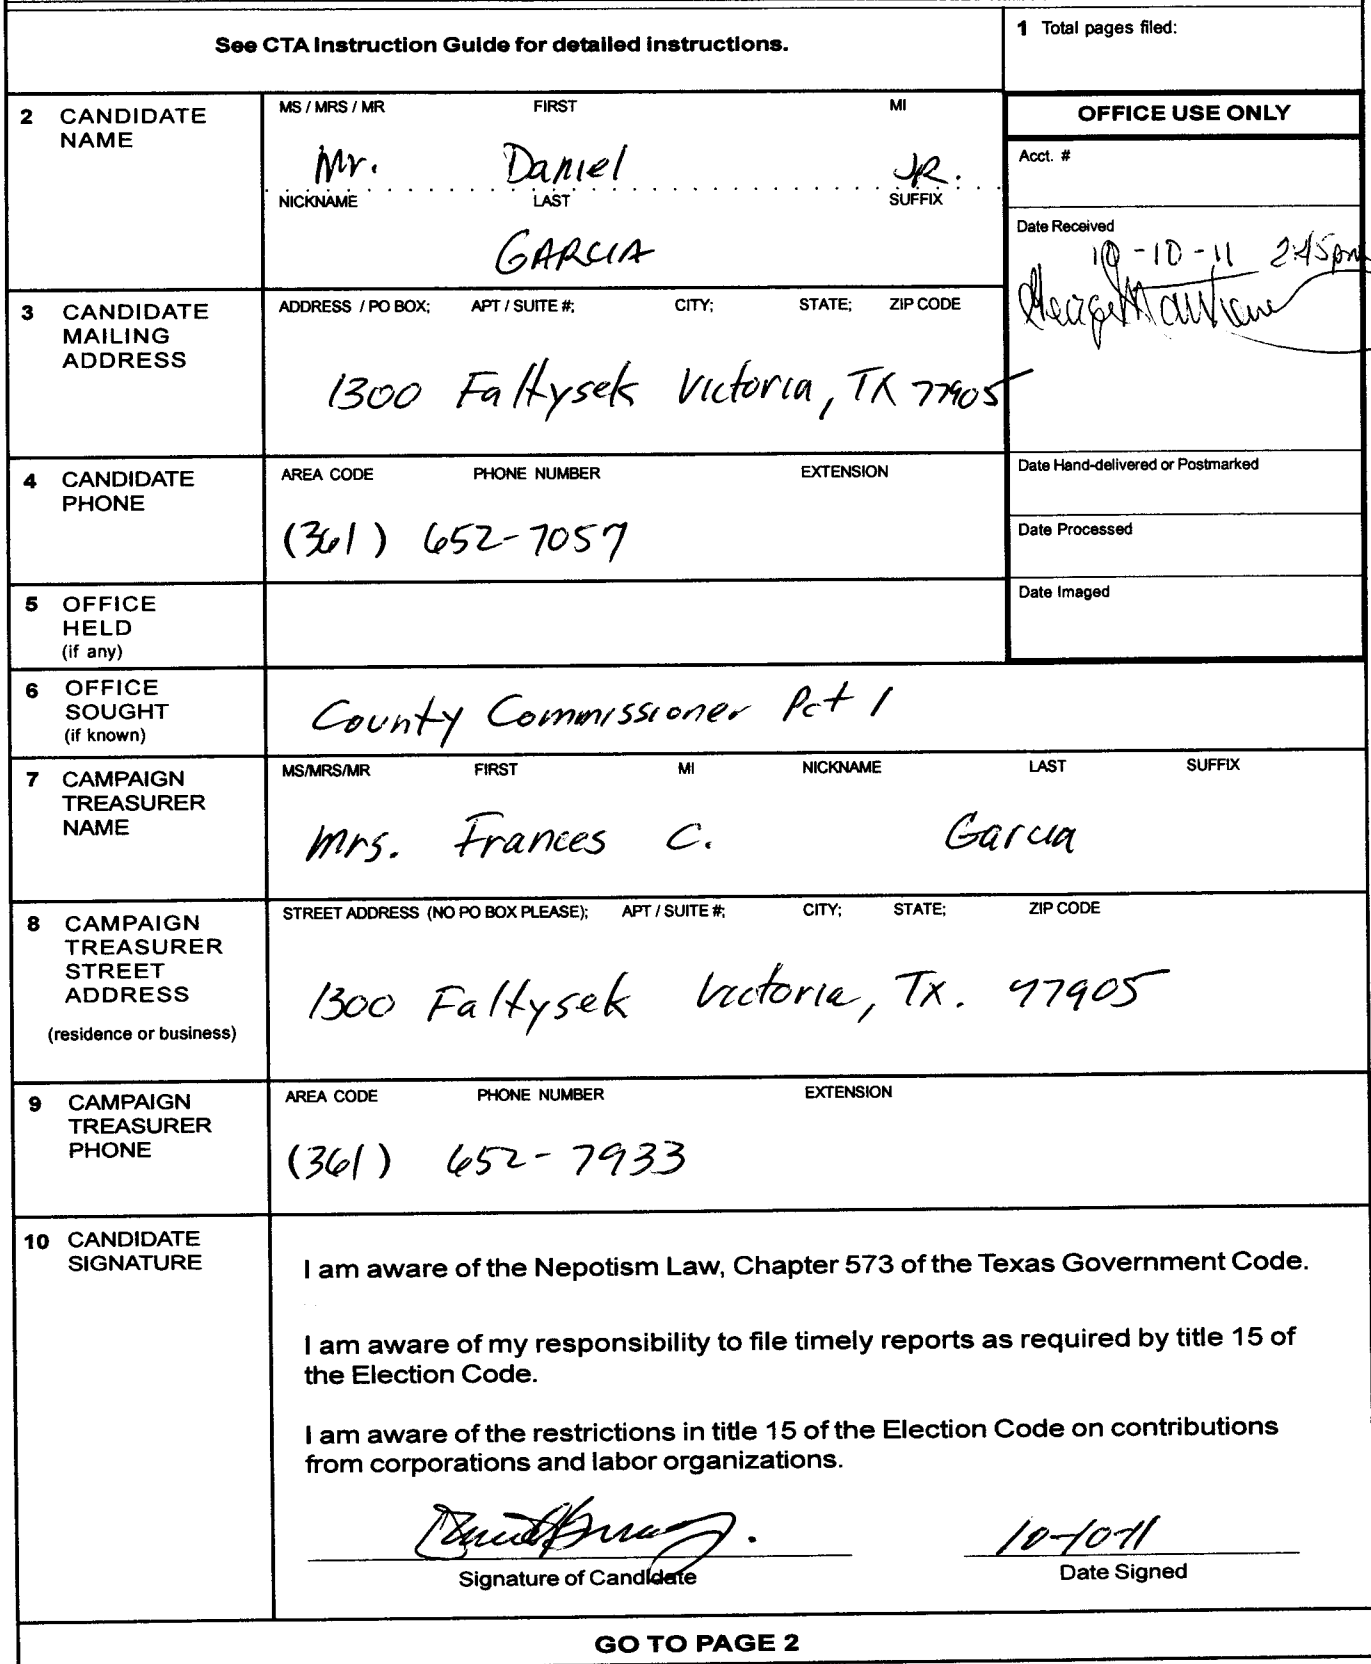 See CTA Instruction Guide for detailed instructions.
1 Total pages filed:
2 CANDIDATE NAME
MS / MRS / MR FIRST MI
Mr. Daniel JR.
NICKNAME LAST SUFFIX
GARCIA
OFFICE USE ONLY
Acct. #
Date Received
10-10-11 2:45pm
3 CANDIDATE MAILING ADDRESS
ADDRESS / PO BOX; APT / SUITE #; CITY; STATE; ZIP CODE
1300 Faltysek Victoria, TX 77905
4 CANDIDATE PHONE
AREA CODE PHONE NUMBER EXTENSION
(361) 652-7057
Date Hand-delivered or Postmarked
Date Processed
Date Imaged
5 OFFICE HELD
(if any)
6 OFFICE SOUGHT
(if known)
County Commissioner Pct 1
7 CAMPAIGN TREASURER NAME
MS/MRS/MR FIRST MI NICKNAME LAST SUFFIX
Mrs. Frances C. Garcia
8 CAMPAIGN TREASURER STREET ADDRESS
(residence or business)
STREET ADDRESS (NO PO BOX PLEASE); APT / SUITE #; CITY; STATE; ZIP CODE
1300 Faltysek Victoria, Tx. 77905
9 CAMPAIGN TREASURER PHONE
AREA CODE PHONE NUMBER EXTENSION
(361) 652-7933
10 CANDIDATE SIGNATURE
I am aware of the Nepotism Law, Chapter 573 of the Texas Government Code.
I am aware of my responsibility to file timely reports as required by title 15 of
the Election Code.
I am aware of the restrictions in title 15 of the Election Code on contributions
from corporations and labor organizations.
10-10-11
Signature of Candidate Date Signed
GO TO PAGE 2